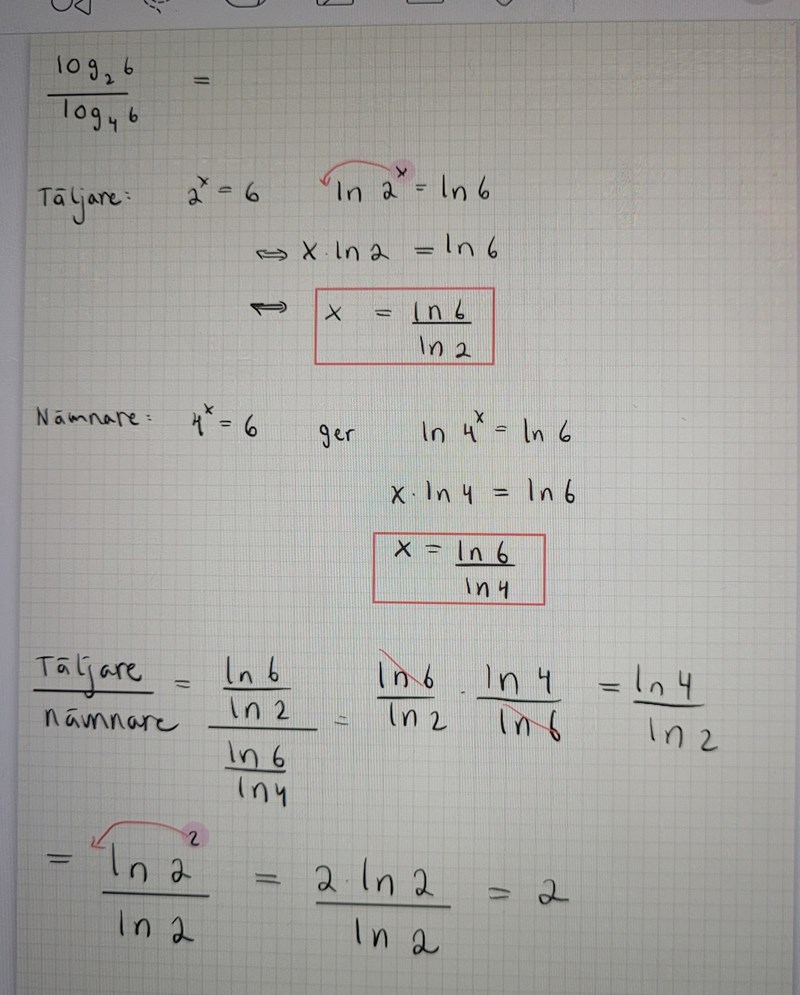 log₂6 / log₄6 =
Täljare: 2ˣ = 6 ln 2ˣ = ln 6
⇔ x · ln 2 = ln 6
⇔ x = ln 6 / ln 2
Nämnare: 4ˣ = 6 ger ln 4ˣ = ln 6
x · ln 4 = ln 6
x = ln 6 / ln 4
Täljare / nämnare = (ln 6 / ln 2) / (ln 6 / ln 4) = ln 6 / ln 2 · ln 4 / ln 6 = ln 4 / ln 2
= ln 2² / ln 2 = 2 · ln 2 / ln 2 = 2